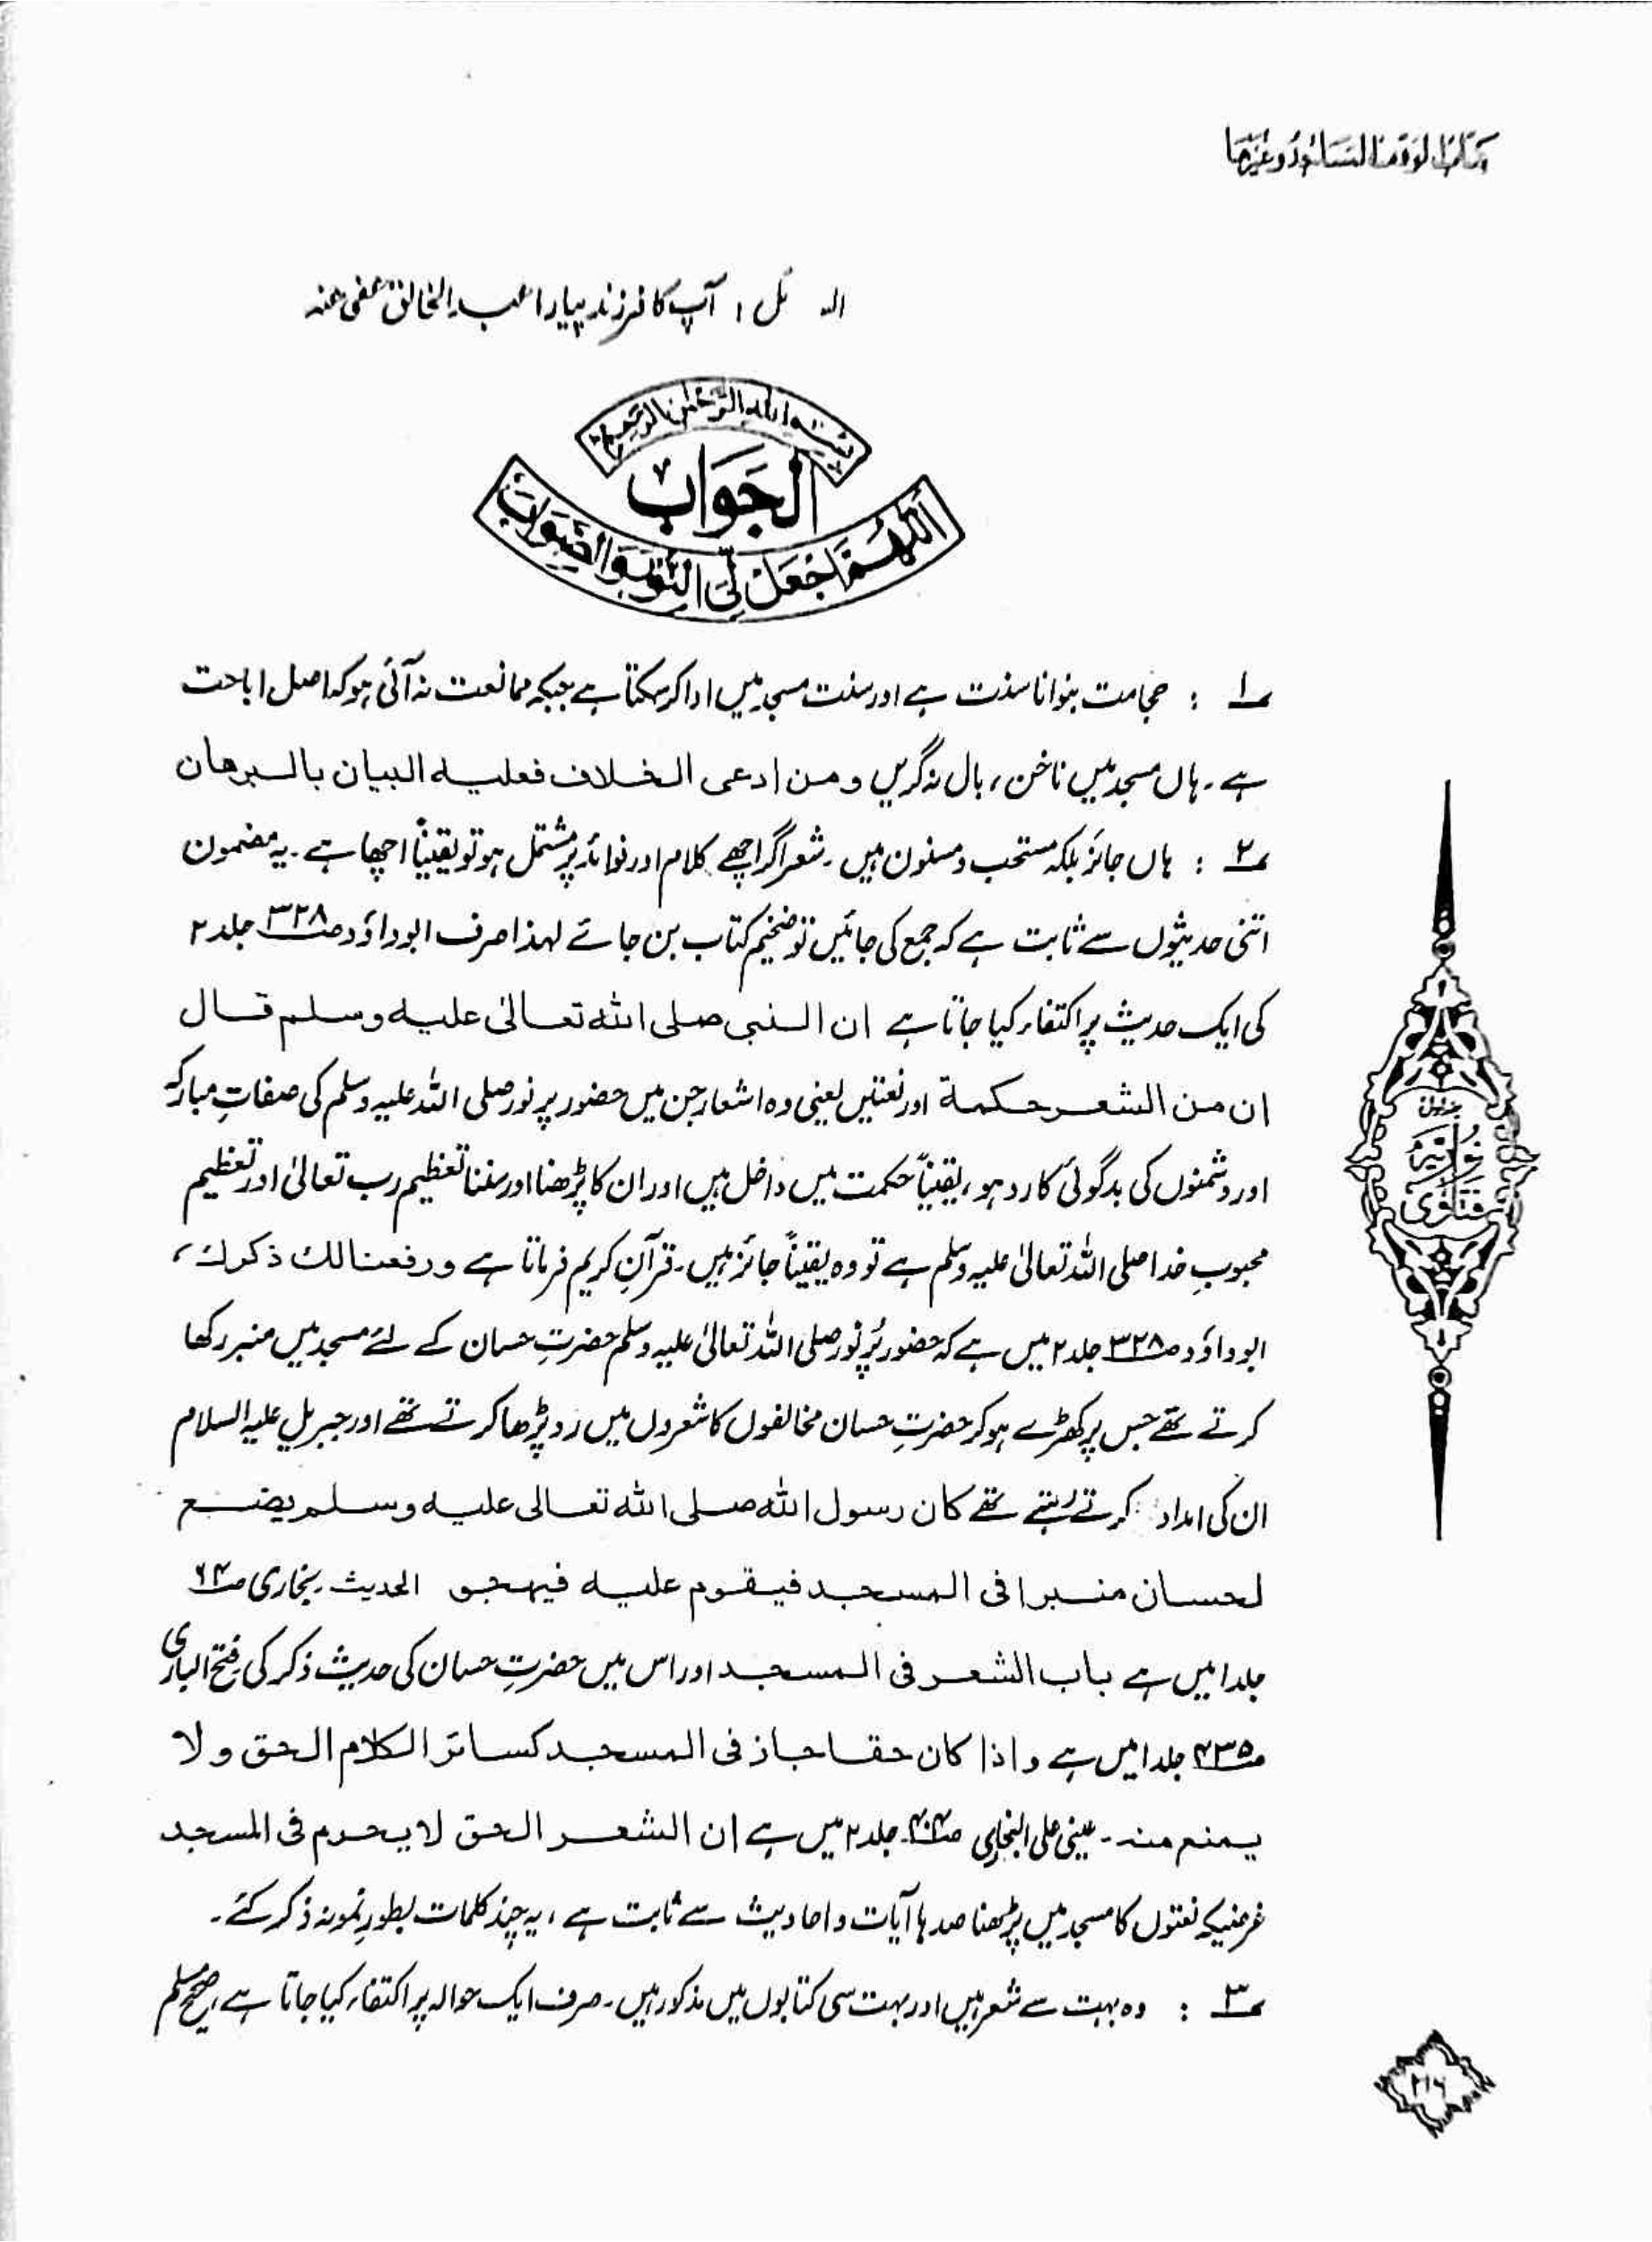 السائل: آپ کا فرزند پیارا عبدالخالق عفی عنہ
بسم الله الرحمن الرحيم
الجَوَاب
اللهم اجعل لي النور والصواب
۱ : حجامت بنوانا سنت ہے اور سنت مسجد میں ادا کر سکتا ہے جبکہ ممانعت نہ آئی ہو کہ اصل اباحت
ہے۔ ہاں مسجد میں ناخن، بال نہ گریں ومن ادعی الخلاف فعلیہ البیان بالبرھان
۲ : ہاں جائز بلکہ مستحب و مسنون ہیں۔ شعر اگر اچھے کلام اور فوائد پر مشتمل ہو تو یقیناً اچھا ہے۔ یہ مضمون
اتنی حدیثوں سے ثابت ہے کہ جمع کی جائیں تو ضخیم کتاب بن جائے لہذا صرف ابوداؤد ص۳۲۸ جلد ۲
کی ایک حدیث پر اکتفاء کیا جاتا ہے ان النبی صلی اللہ تعالیٰ علیہ وسلم قال
ان من الشعر حکمۃ اور نعتیں یعنی وہ اشعار جن میں حضور پر نور صلی اللہ علیہ وسلم کی صفاتِ مبارکہ
اور دشمنوں کی بدگوئی کا رد ہو، یقیناً حکمت میں داخل ہیں اور ان کا پڑھنا اور سننا تعظیم رب تعالیٰ اور تعظیم
محبوبِ خدا صلی اللہ تعالیٰ علیہ وسلم ہے تو وہ یقیناً جائز ہیں۔ قرآنِ کریم فرماتا ہے ورفعنا لك ذكرك،
ابوداؤد ص۳۲۸ جلد ۲ میں ہے کہ حضور پُر نور صلی اللہ تعالیٰ علیہ وسلم حضرتِ حسان کے لئے مسجد میں منبر رکھا
کرتے تھے جس پر کھڑے ہو کر حضرتِ حسان مخالفوں کا شعروں میں رد پڑھا کرتے تھے اور جبریل علیہ السلام
ان کی امداد کرتے رہتے تھے کان رسول اللہ صلی اللہ تعالی علیہ وسلم یضع
لحسان منبرا فی المسجد فیقوم علیہ فیہجو الحدیث۔ بخاری ص۶۴
جلد ۱ میں ہے باب الشعر فی المسجد اور اس میں حضرتِ حسان کی حدیث ذکر کی۔ فتح الباری
ص۴۳۵ جلد ۱ میں ہے واذا کان حقا جاز فی المسجد کسائر الکلام الحق ولا
یمنع منہ۔ عینی علی البخاری ص۴۰۴ جلد ۲ میں ہے ان الشعر الحق لا یحرم فی المسجد
غرضیکہ نعتوں کا مسجد میں پڑھنا صدہا آیات و احادیث سے ثابت ہے، یہ چند کلمات بطورِ نمونہ ذکر کئے۔
۳ : وہ بہت سے شعر ہیں اور بہت سی کتابوں میں مذکور ہیں۔ صرف ایک حوالہ پر اکتفاء کیا جاتا ہے، صحیح مسلم
نوریہ
فتاوی
۲۱۶